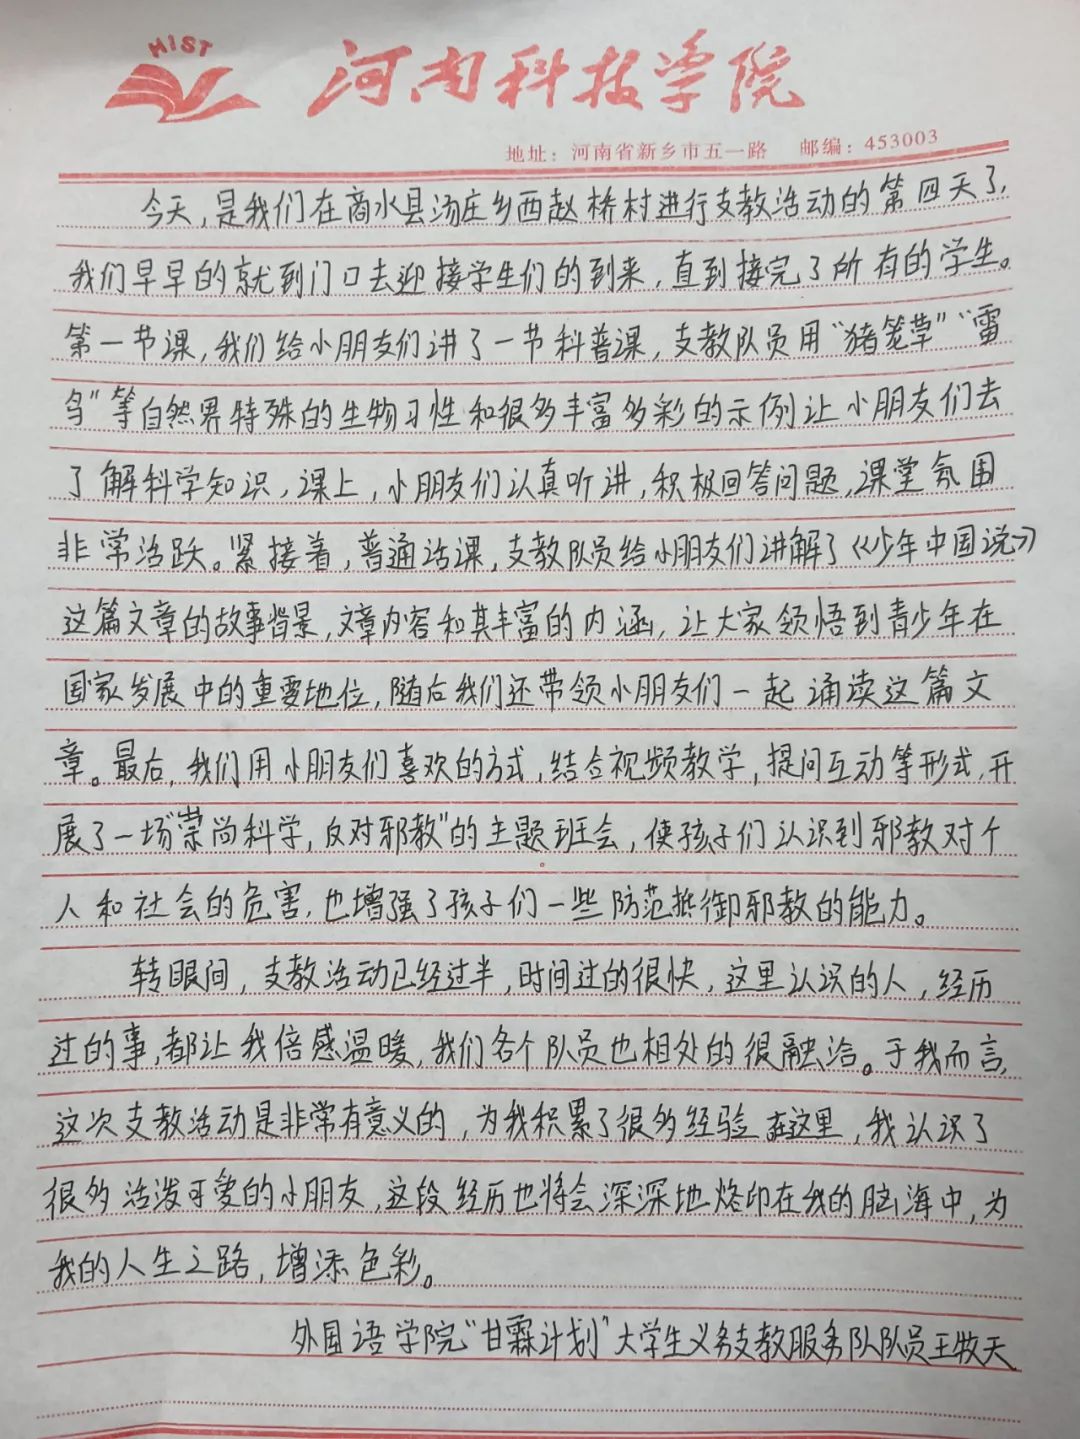 HIST
河南科技学院
地址：河南省新乡市五一路 邮编：453003
今天，是我们在商水县汤庄乡西赵桥村进行支教活动的第四天了，
我们早早的就到门口去迎接学生们的到来，直到接完了所有的学生。
第一节课，我们给小朋友们讲了一节科普课，支教队员用“猪笼草”“雷
鸟”等自然界特殊的生物习性和很多丰富多彩的示例让小朋友们去
了解科学知识，课上，小朋友们认真听讲，积极回答问题，课堂氛围
非常活跃。紧接着，普通话课，支教队员给小朋友们讲解了《少年中国说》
这篇文章的故事背景，文章内容和其丰富的内涵，让大家领悟到青少年在
国家发展中的重要地位，随后我们还带领小朋友们一起诵读这篇文
章。最后，我们用小朋友们喜欢的方式，结合视频教学，提问互动等形式，开
展了一场“崇尚科学，反对邪教”的主题班会，使孩子们认识到邪教对个
人和社会的危害，也增强了孩子们一些防范抵御邪教的能力。
转眼间，支教活动已经过半，时间过的很快，这里认识的人，经历
过的事，都让我倍感温暖，我们各个队员也相处的很融洽。于我而言，
这次支教活动是非常有意义的，为我积累了很多经验，在这里，我认识了
很多活泼可爱的小朋友，这段经历也将会深深地烙印在我的脑海中，为
我的人生之路，增添色彩。
外国语学院“甘霖计划”大学生义务支教服务队队员王牧天